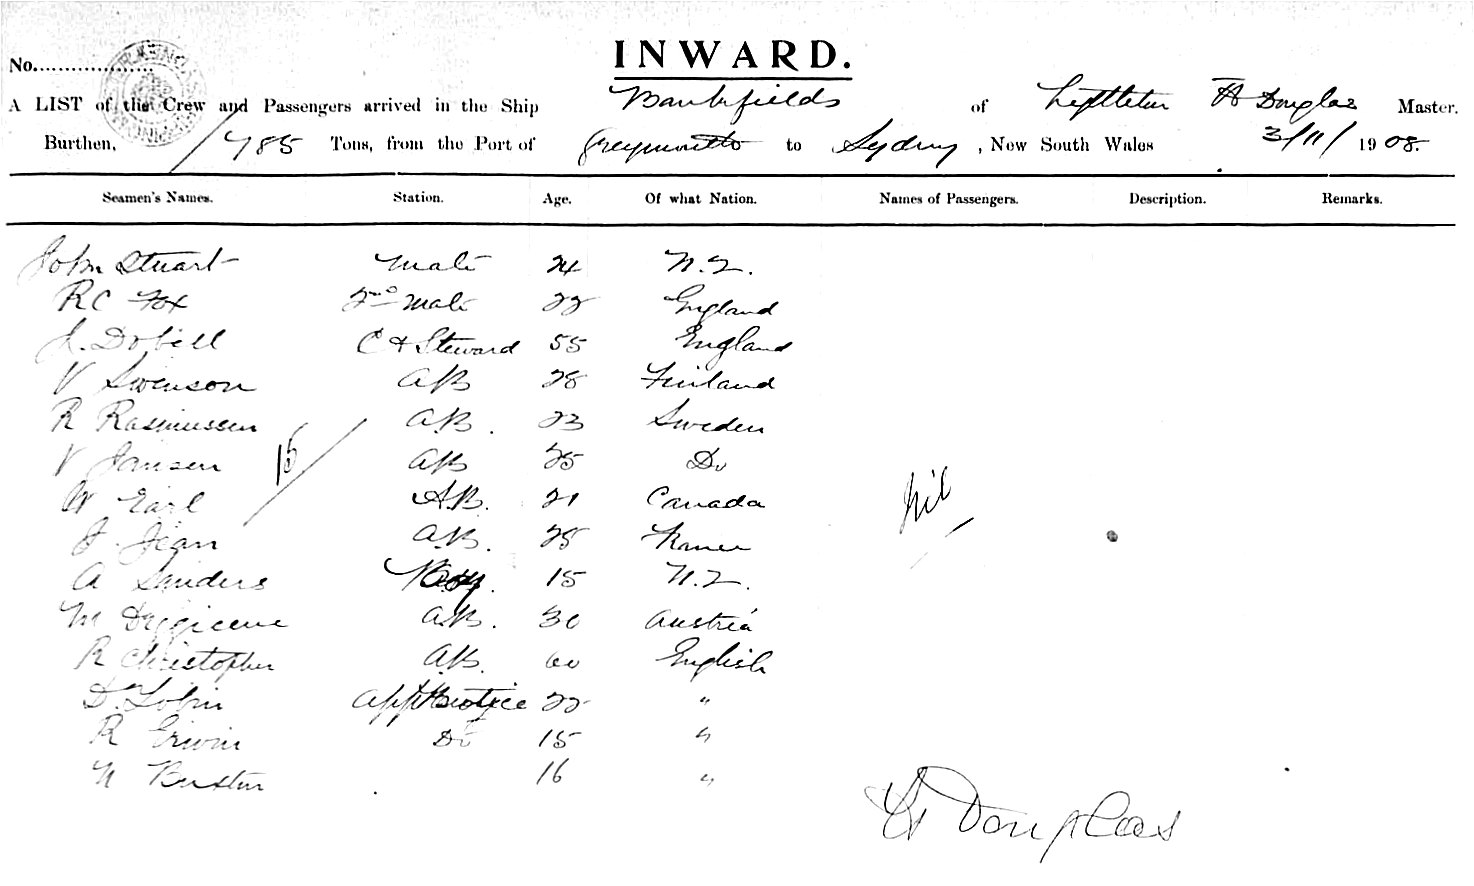 INWARD.
No..................
A LIST of the Crew and Passengers arrived in the Ship Bankfields of Lyttelton H Douglas Master.
Burthen, 785 Tons, from the Port of Greymouth to Sydney, New South Wales 3/11/1908.
Seamen's Names. Station. Age. Of what Nation. Names of Passengers. Description. Remarks.
John Stuart Mate 24 N.Z.
R C Fox 2nd Mate 22 England
J. Dobell C & Steward 55 England
V Swenson AB 28 Finland
R Rasmussen AB. 23 Sweden
V Jansen 15 AB 25 Do
W Earl A.B. 21 Canada
Nil
J. Jean A.B. 28 France
A Sanders Boy. 15 N.Z.
M A.B. 30 Austria
R Christopher AB. 60 English
D. Tobin apprentice 22 "
R Erwin Do 15 "
N Burton 16 "
H Douglas